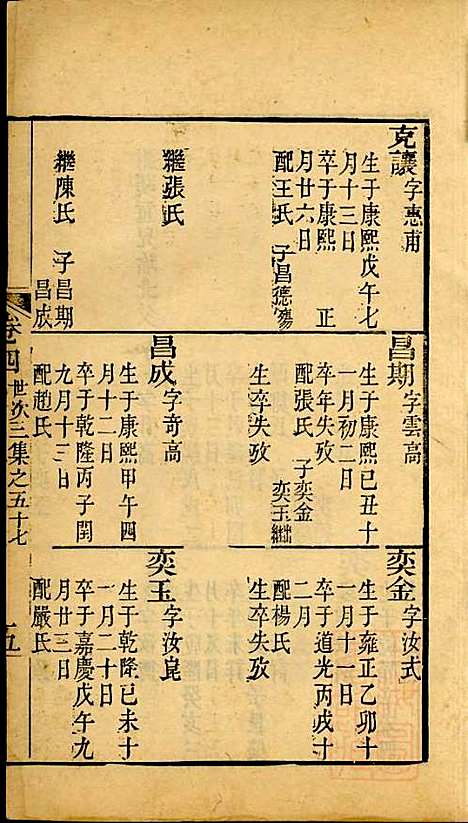 克讓字惠甫
生于康熙戊午七
月十三日
卒于康熙 正
月廿六日
配王氏 子昌德殤
繼張氏
繼陳氏 子昌期
昌成
昌期字雲高
生于康熙己丑十
一月初二日
卒年失攷
配張氏 子奕金
奕玉繼出
生卒失攷
昌成字奇高
生于康熙甲午四
月十二日
卒于乾隆丙子閏
九月十三日
配趙氏
奕金字汝式
生于雍正乙卯十
一月十一日
卒于道光丙戌十
二月
配楊氏
生卒失攷
奕玉字汝崑
生于乾隆己未十
一月二十日
卒于嘉慶戊午九
月廿三日
配嚴氏
卷四 世次三集之五十七
五